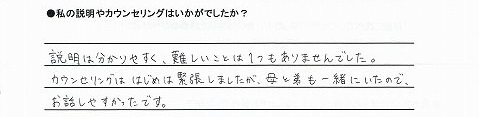 ●私の説明やカウンセリングはいかがでしたか？
説明は分かりやすく、難しいことは1つもありませんでした。
カウンセリングは はじめは緊張しましたが、母と弟も一緒にいたので、
お話しやすかったです。